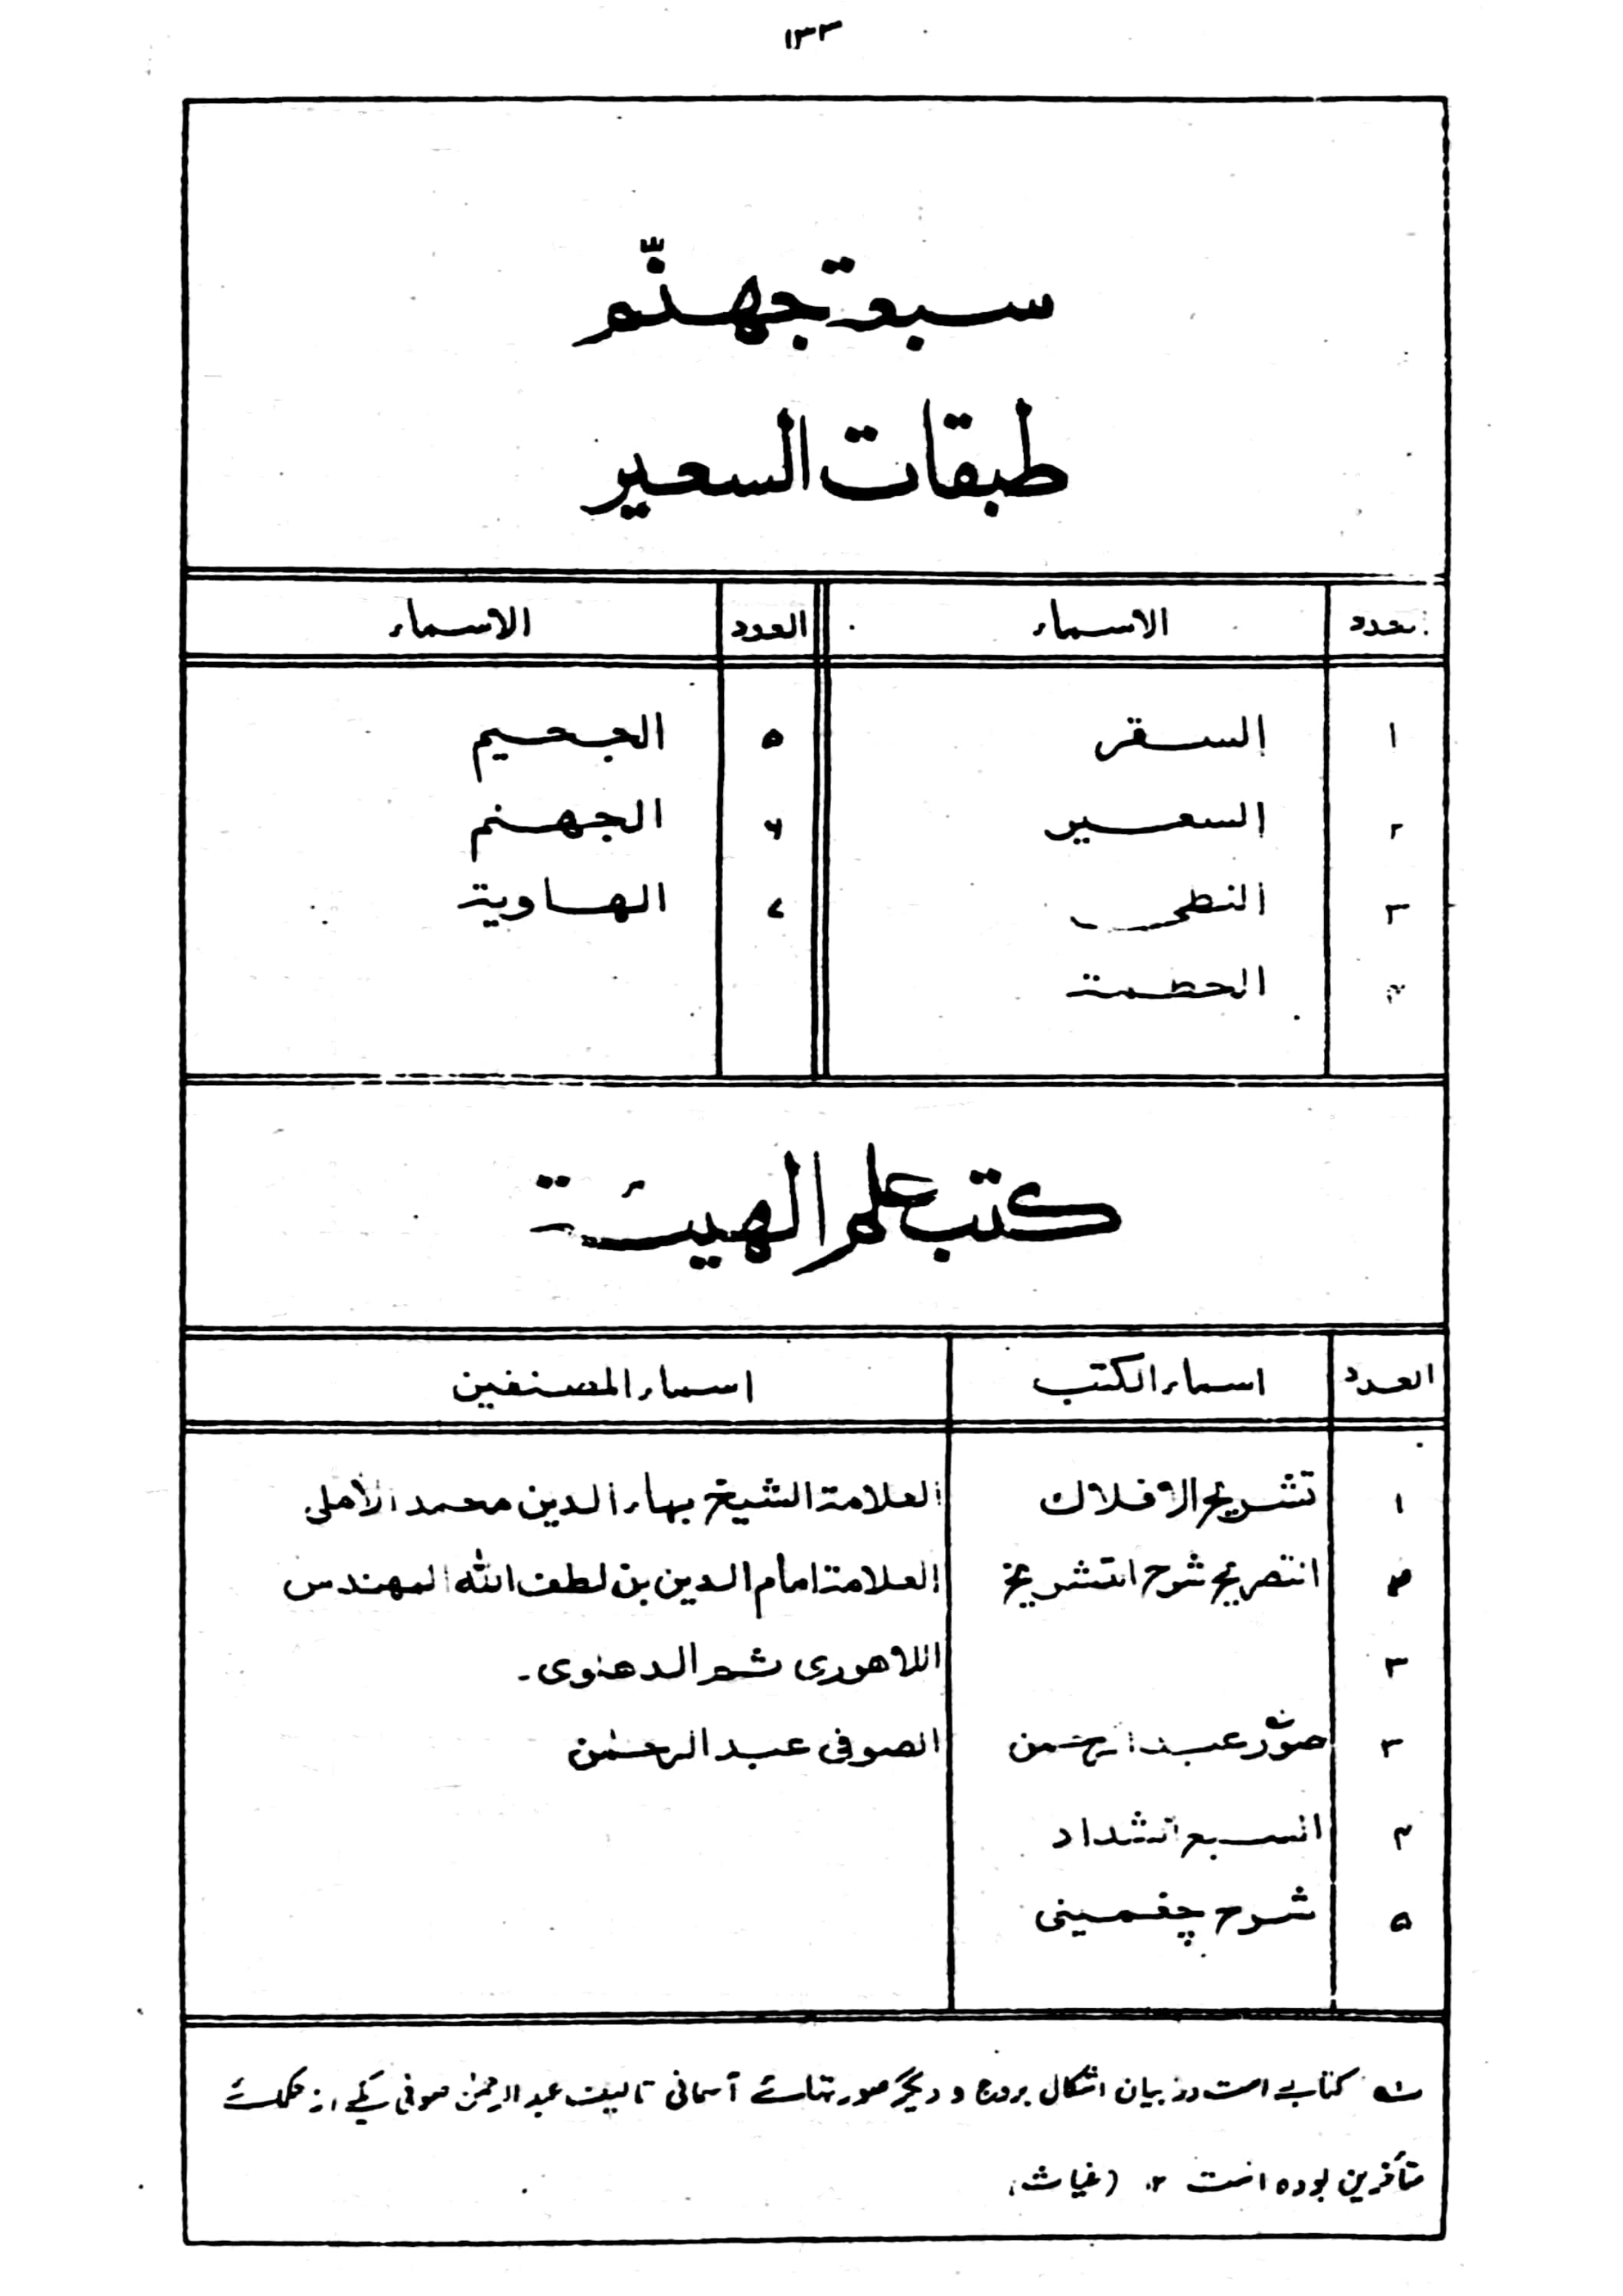 ۱۳۳
سبعة جهنّم
طبقات السعير
العدد الاسماء العدد الاسماء
۱ السقر ۵ الجحيم
۲ السعير ۶ الجهنم
۳ النطى ۷ الهاوية
۴ الحطمة
كتب علم الهيئة
العدد اسماء الكتب اسماء المصنفين
۱ تشريح الافلاك العلامة الشيخ بهاء الدين محمد الأملى
۲ التصريح شرح التشريح العلامة امام الدين بن لطف الله المهندس
۳ اللاهورى ثم الدهلوى۔
۳ صوّر عبد الرحمن الصوفى عبد الرحمٰن
۴ السبع الشداد
۵ شرح چغمينى
کتابے است در بیان اشکال بروج و دیگر صورتہائے آسمانی تالیف عبد الرحمٰن صوفی یکے از حکمائے
متأخرین بودہ است ۱۲ (غیاث)